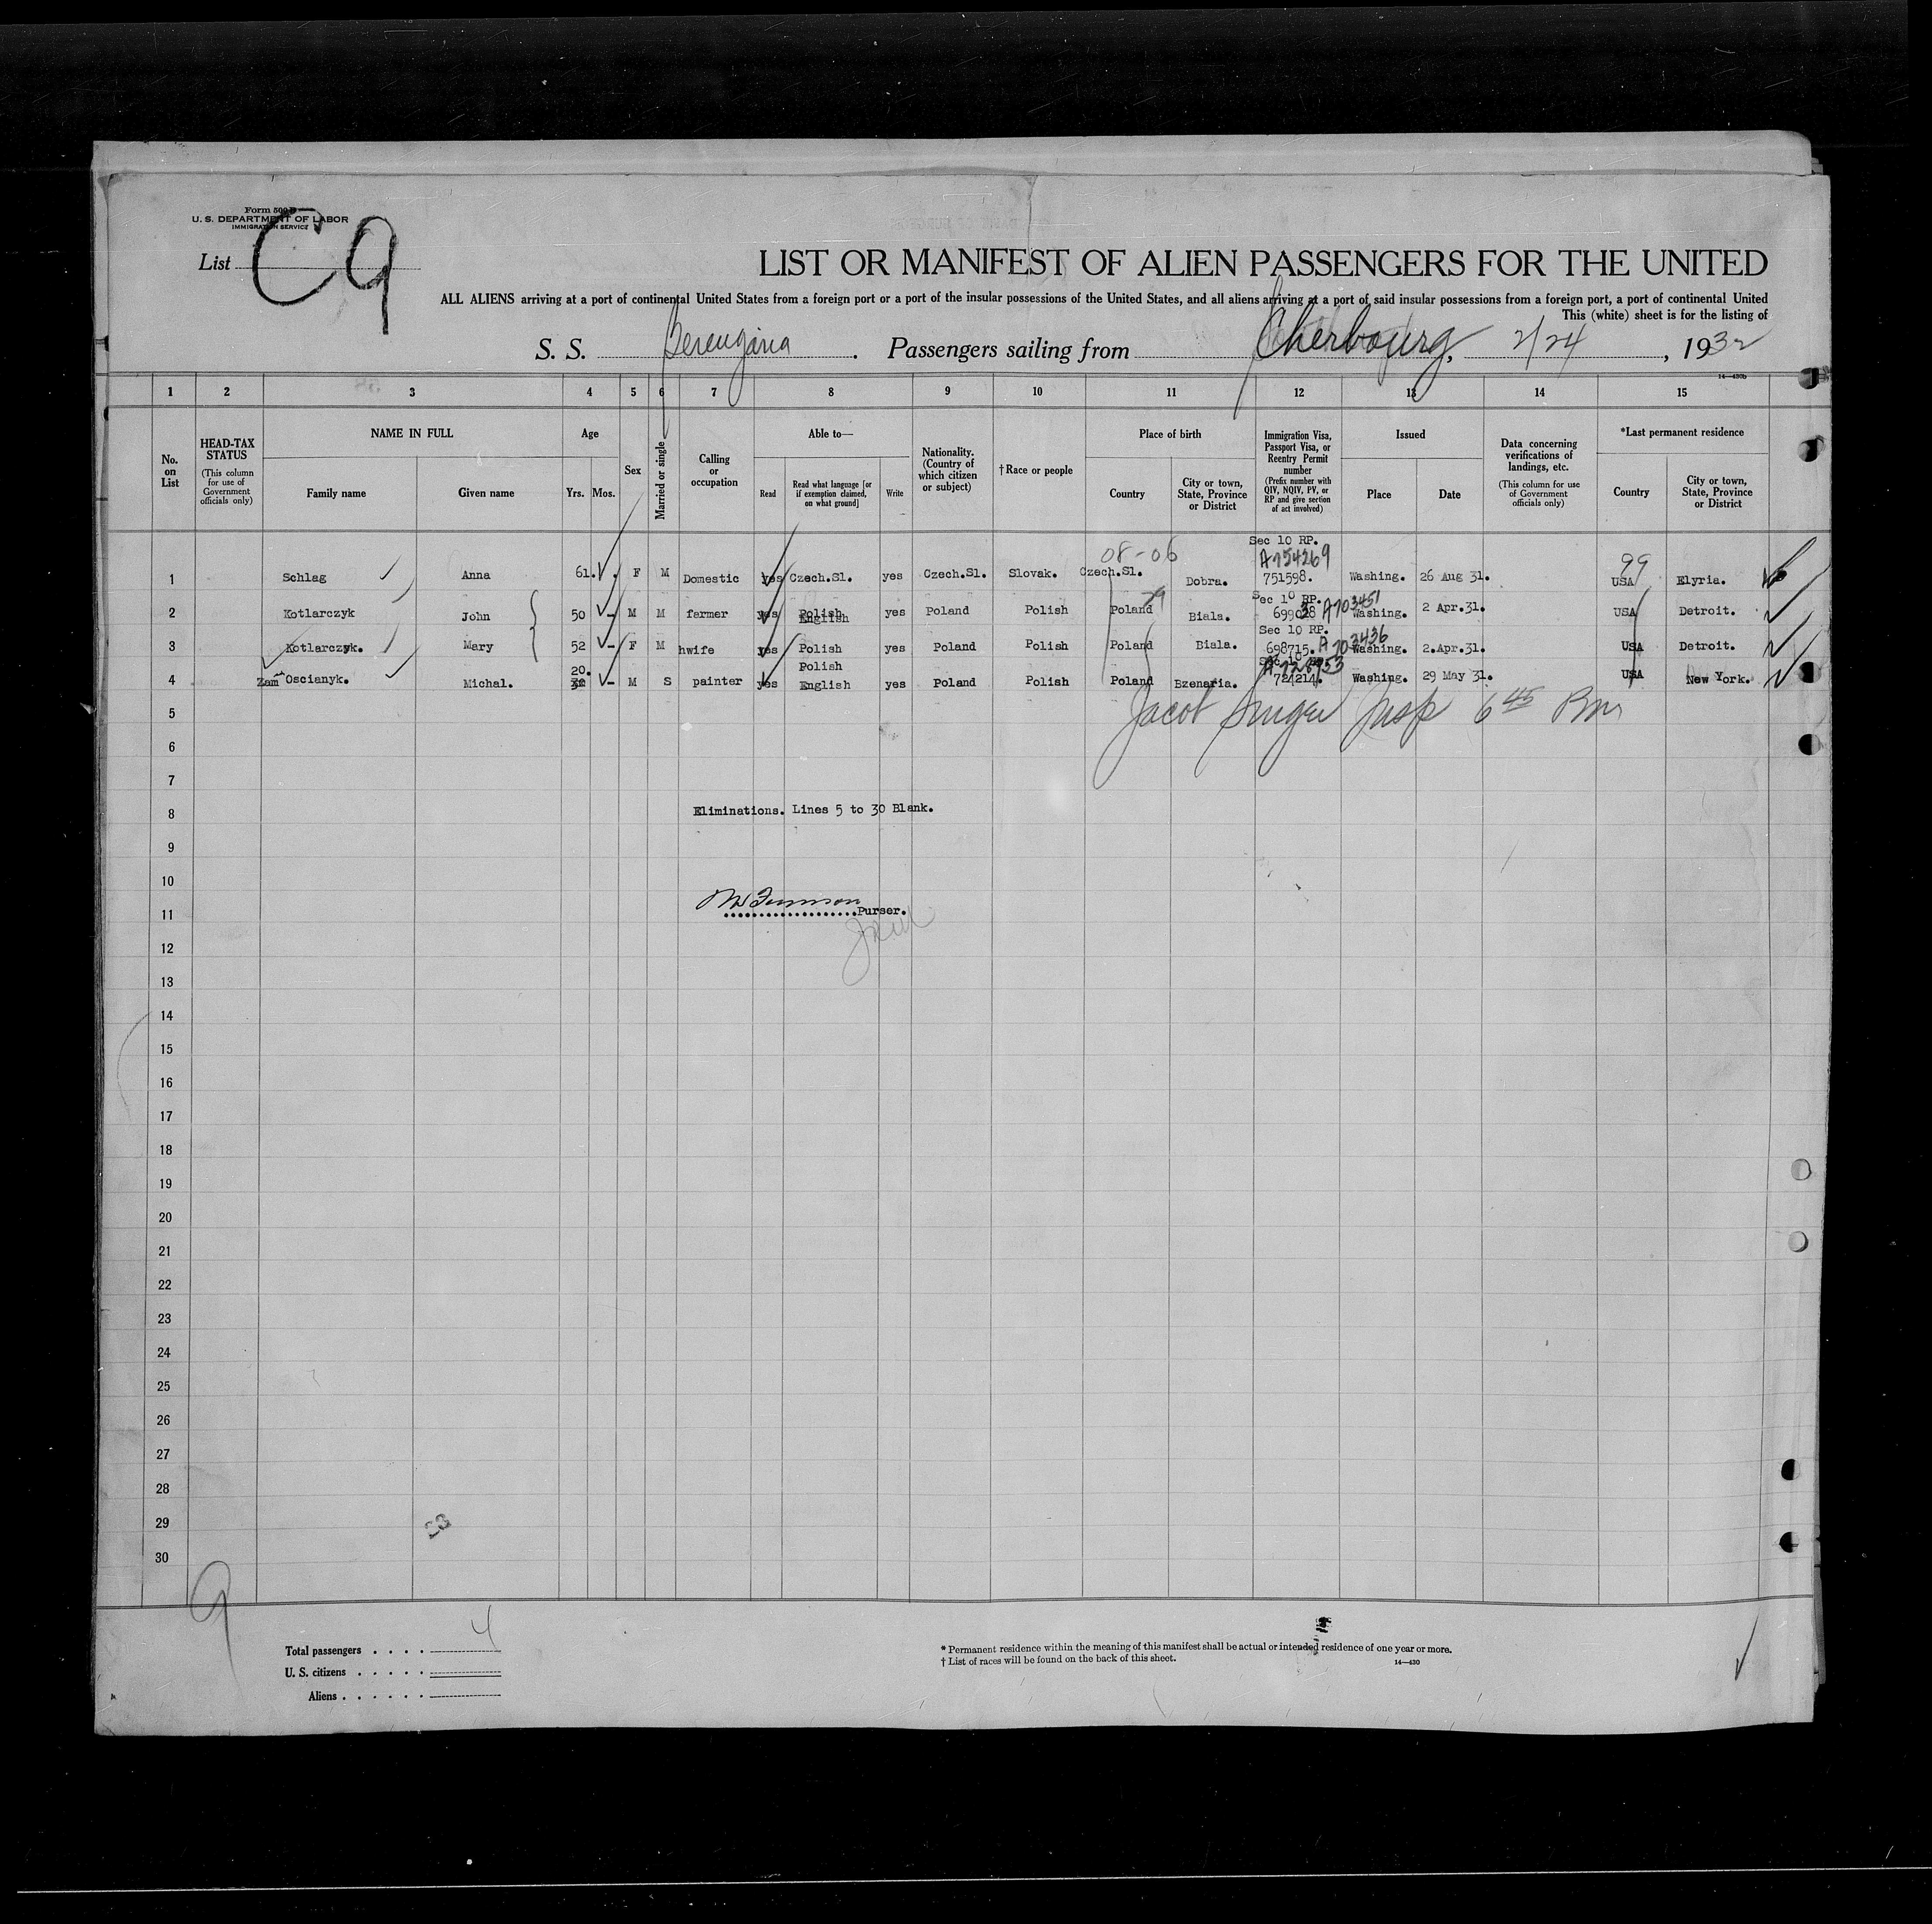 Form 500 B
U. S. DEPARTMENT OF LABOR
IMMIGRATION SERVICE
List C9
LIST OR MANIFEST OF ALIEN PASSENGERS FOR THE UNITED
ALL ALIENS arriving at a port of continental United States from a foreign port or a port of the insular possessions of the United States, and all aliens arriving at a port of said insular possessions from a foreign port, a port of continental United
This (white) sheet is for the listing of
S. S. Berengaria. Passengers sailing from Cherbourg, 2/24, 1932
14—430b
1 2 3 4 5 6 7 8 9 10 11 12 13 14 15
No. on List
HEAD-TAX STATUS (This column for use of Government officials only)
NAME IN FULL
Family name
Given name
Age
Yrs. Mos.
Sex
Married or single
Calling or occupation
Able to—
Read
Read what language [or if exemption claimed, on what ground]
Write
Nationality. (Country of which citizen or subject)
†Race or people
Place of birth
Country
City or town, State, Province or District
Immigration Visa, Passport Visa, or Reentry Permit number (Prefix number with QIV, NQIV, PV, or RP and give section of act involved)
Issued
Place
Date
Data concerning verifications of landings, etc. (This column for use of Government officials only)
*Last permanent residence
Country
City or town, State, Province or District
08-06 Sec 10 RP. A754269 99
1 Schlag Anna 61. F M Domestic yes Czech.Sl. yes Czech.Sl. Slovak. Czech.Sl. Dobra. 751598. Washing. 26 Aug 31. USA Elyria.
Sec 10 RP. A703451
2 Kotlarczyk John 50 - M M farmer yes Polish English yes Poland Polish Poland Biala. Washing. 2 Apr.31. USA Detroit.
Sec 10 RP. A703436
3 Kotlarczyk. Mary 52 - F M hwife yes Polish yes Poland Polish Poland Biala. 698715. Washing. 2.Apr.31. USA Detroit.
20. Polish
4 Zam Oscianyk. Michal. - M S painter yes English yes Poland Polish Poland Bzenaria. 724214. Washing. 29 May 31. USA New York.
Jacob Singer Insp 6 45 Pm
5
6
7
8 Eliminations. Lines 5 to 30 Blank.
9
10
11 Purser.
12
13
14
15
16
17
18
19
20
21
22
23
24
25
26
27
28
29
30
9
Total passengers . . . . 4
U. S. citizens . . . . .
Aliens . . . . . .
* Permanent residence within the meaning of this manifest shall be actual or intended residence of one year or more.
† List of races will be found on the back of this sheet.
14—430